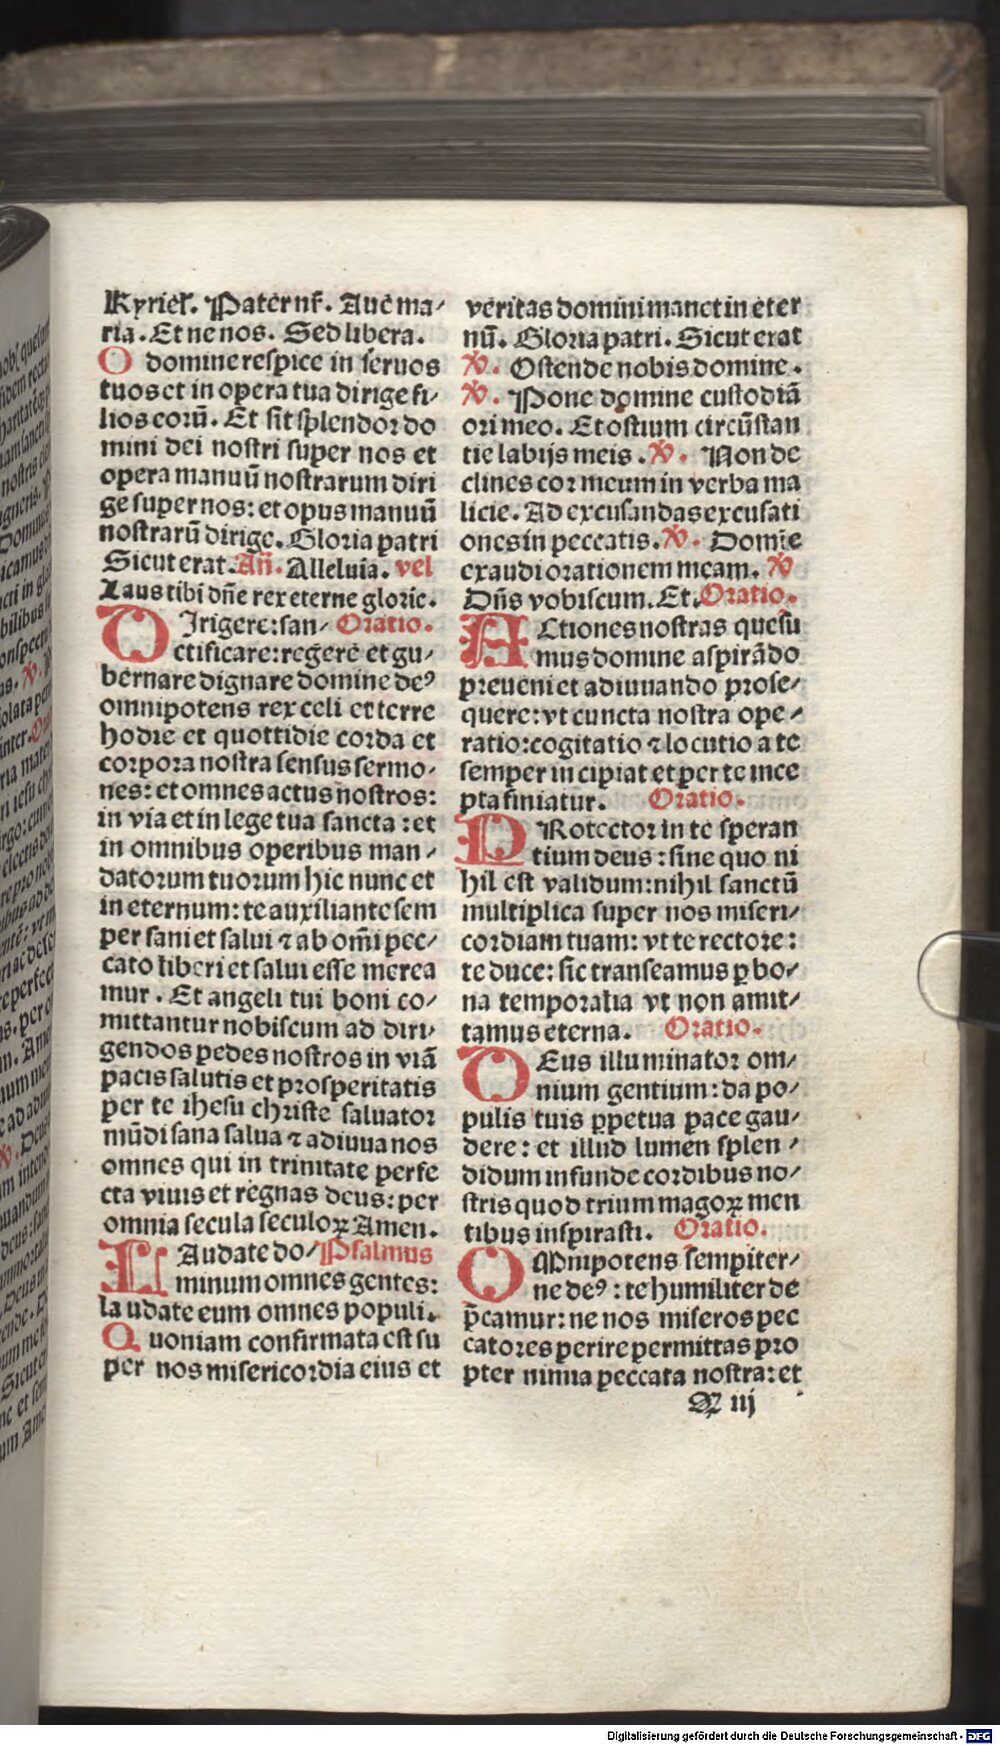 Kyriel̄. Pater nr̄. Aue ma/
ria. Et ne nos. Sed libera.
O domine respice in seruos
tuos et in opera tua dirige fi/
lios eorū. Et sit splendor do
mini dei nostri super nos et
opera manuū nostrarum diri
ge super nos: et opus manuū
nostrarū dirige. Gloria patri
Sicut erat. Añ. Alleluia. vel
Laus tibi dñe rex eterne glorie.
DIrigere: san/ Oratio.
ctificare: regere et gu/
bernare dignare domine deꝰ
omnipotens rex celi et terre
hodie et quottidie corda et
corpora nostra sensus sermo/
nes: et omnes actus nostros:
in via et in lege tua sancta: et
in omnibus operibus man/
datorum tuorum hic nunc et
in eternum: te auxiliante sem
per sani et salui ⁊ ab om̄i pec/
cato liberi et salui esse merea
mur. Et angeli tui boni co/
mittantur nobiscum ad diri/
gendos pedes nostros in viā
pacis salutis et prosperitatis
per te ihesu christe saluator
mūdi sana salua ⁊ adiuua nos
omnes qui in trinitate perfe
cta viuis et regnas deus: per
omnia secula seculoꝝ Amen.
LAudate do/ Psalmus
minum omnes gentes:
laudate eum omnes populi.
Quoniam confirmata est su
per nos misericordia eius et
veritas domini manet in eter
nū. Gloria patri. Sicut erat
℣. Ostende nobis domine.
℣. Pone domine custodiā
ori meo. Et ostium circūstan
tie labijs meis. ℣. Non de
clines cor meum in verba ma
licie. Ad excusandas excusati
ones in peccatis. ℣. Domie
exaudi orationem meam. ℣
Dñs vobiscum. Et. Oratio.
ACtiones nostras quesu
mus domine aspirādo
preueni et adiuuando prose/
quere: vt cuncta nostra ope/
ratio: cogitatio ⁊ locutio a te
semper incipiat et per te ince
pta finiatur. Oratio.
PRotector in te speran
tium deus: sine quo ni
hil est validum: nihil sanctū
multiplica super nos miseri/
cordiam tuam: vt te rectore:
te duce: sic transeamus ꝑ bo/
na temporalia vt non amit/
tamus eterna. Oratio.
DEus illuminator om/
nium gentium: da po/
pulis tuis ꝑpetua pace gau/
dere: et illud lumen splen/
didum infunde cordibus no/
stris quod trium magoꝝ men
tibus inspirasti. Oratio.
OMnipotens sempiter/
ne deꝰ: te humiliter de
p̄camur: ne nos miseros pec
catores perire permittas pro
pter nimia peccata nostra: et
iij
Digitalisierung gefördert durch die Deutsche Forschungsgemeinschaft - DFG